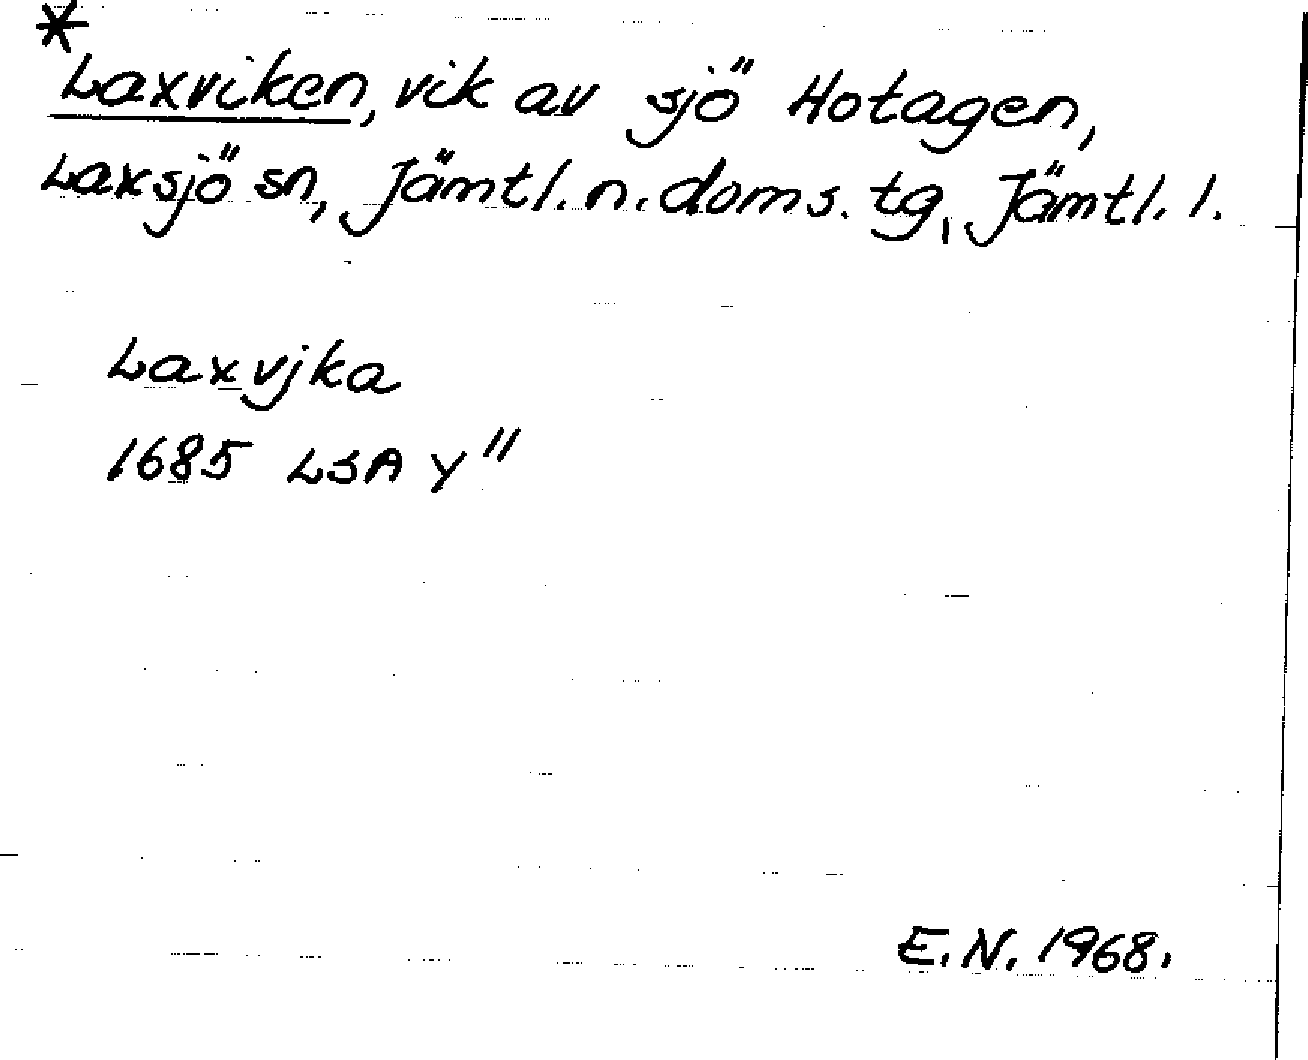 *
Laxviken, vik av sjö Hotagen,
Laxsjö sn, Jämtl. n. doms. tg, Jämtl. l.
Laxvjka
1685 LSA Y"
E.N. 1968.